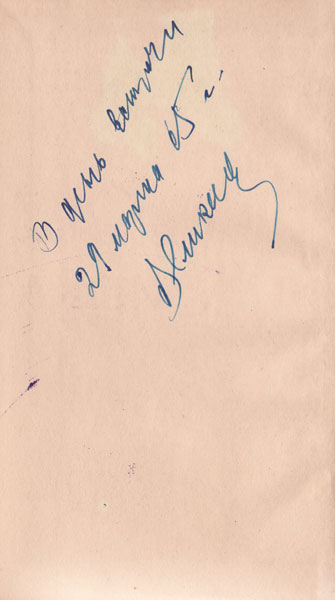 В день встречи
29 марта 65 г.